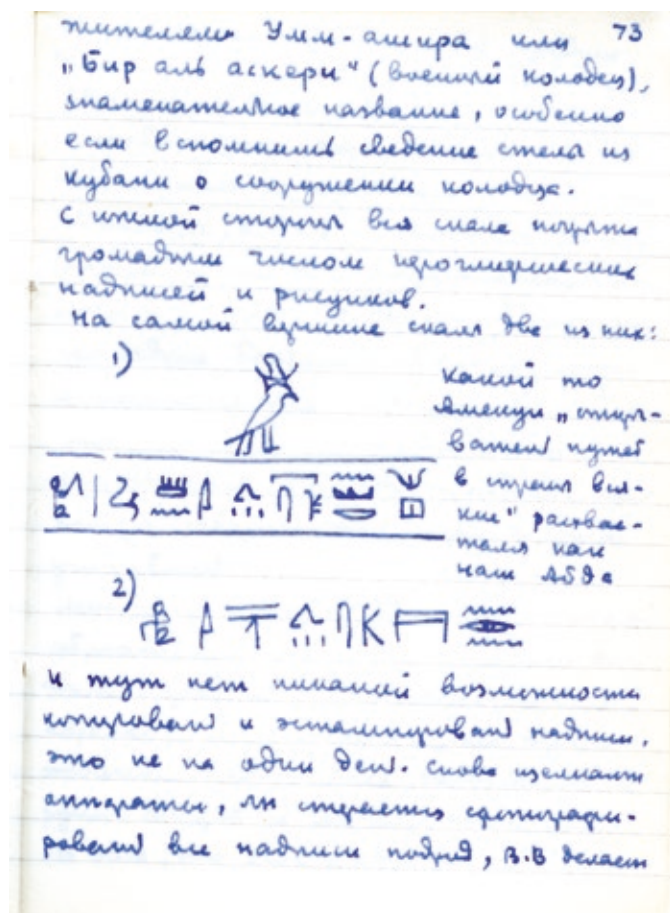 73
жителями Умм-ашира или
„Бир аль аскери" (военный колодец),
знаменательное название, особенно
если вспомнить сведение стелы из
Кубани о сооружении колодца.
С южной стороны вся скала покрыта
громадным числом иероглифических
надписей и рисунков.
На самой вершине скалы две из них:
1)
какой то
Аменхи „открыватель
путей
в страны вся-
кие"
как
наш Абда
2)
и тут нет никакой возможности
копировать и эстампировать надписи,
это не на один день. Снова щелкают
аппараты, мы стараемся сфотографи-
ровать все надписи подряд, В.В делает